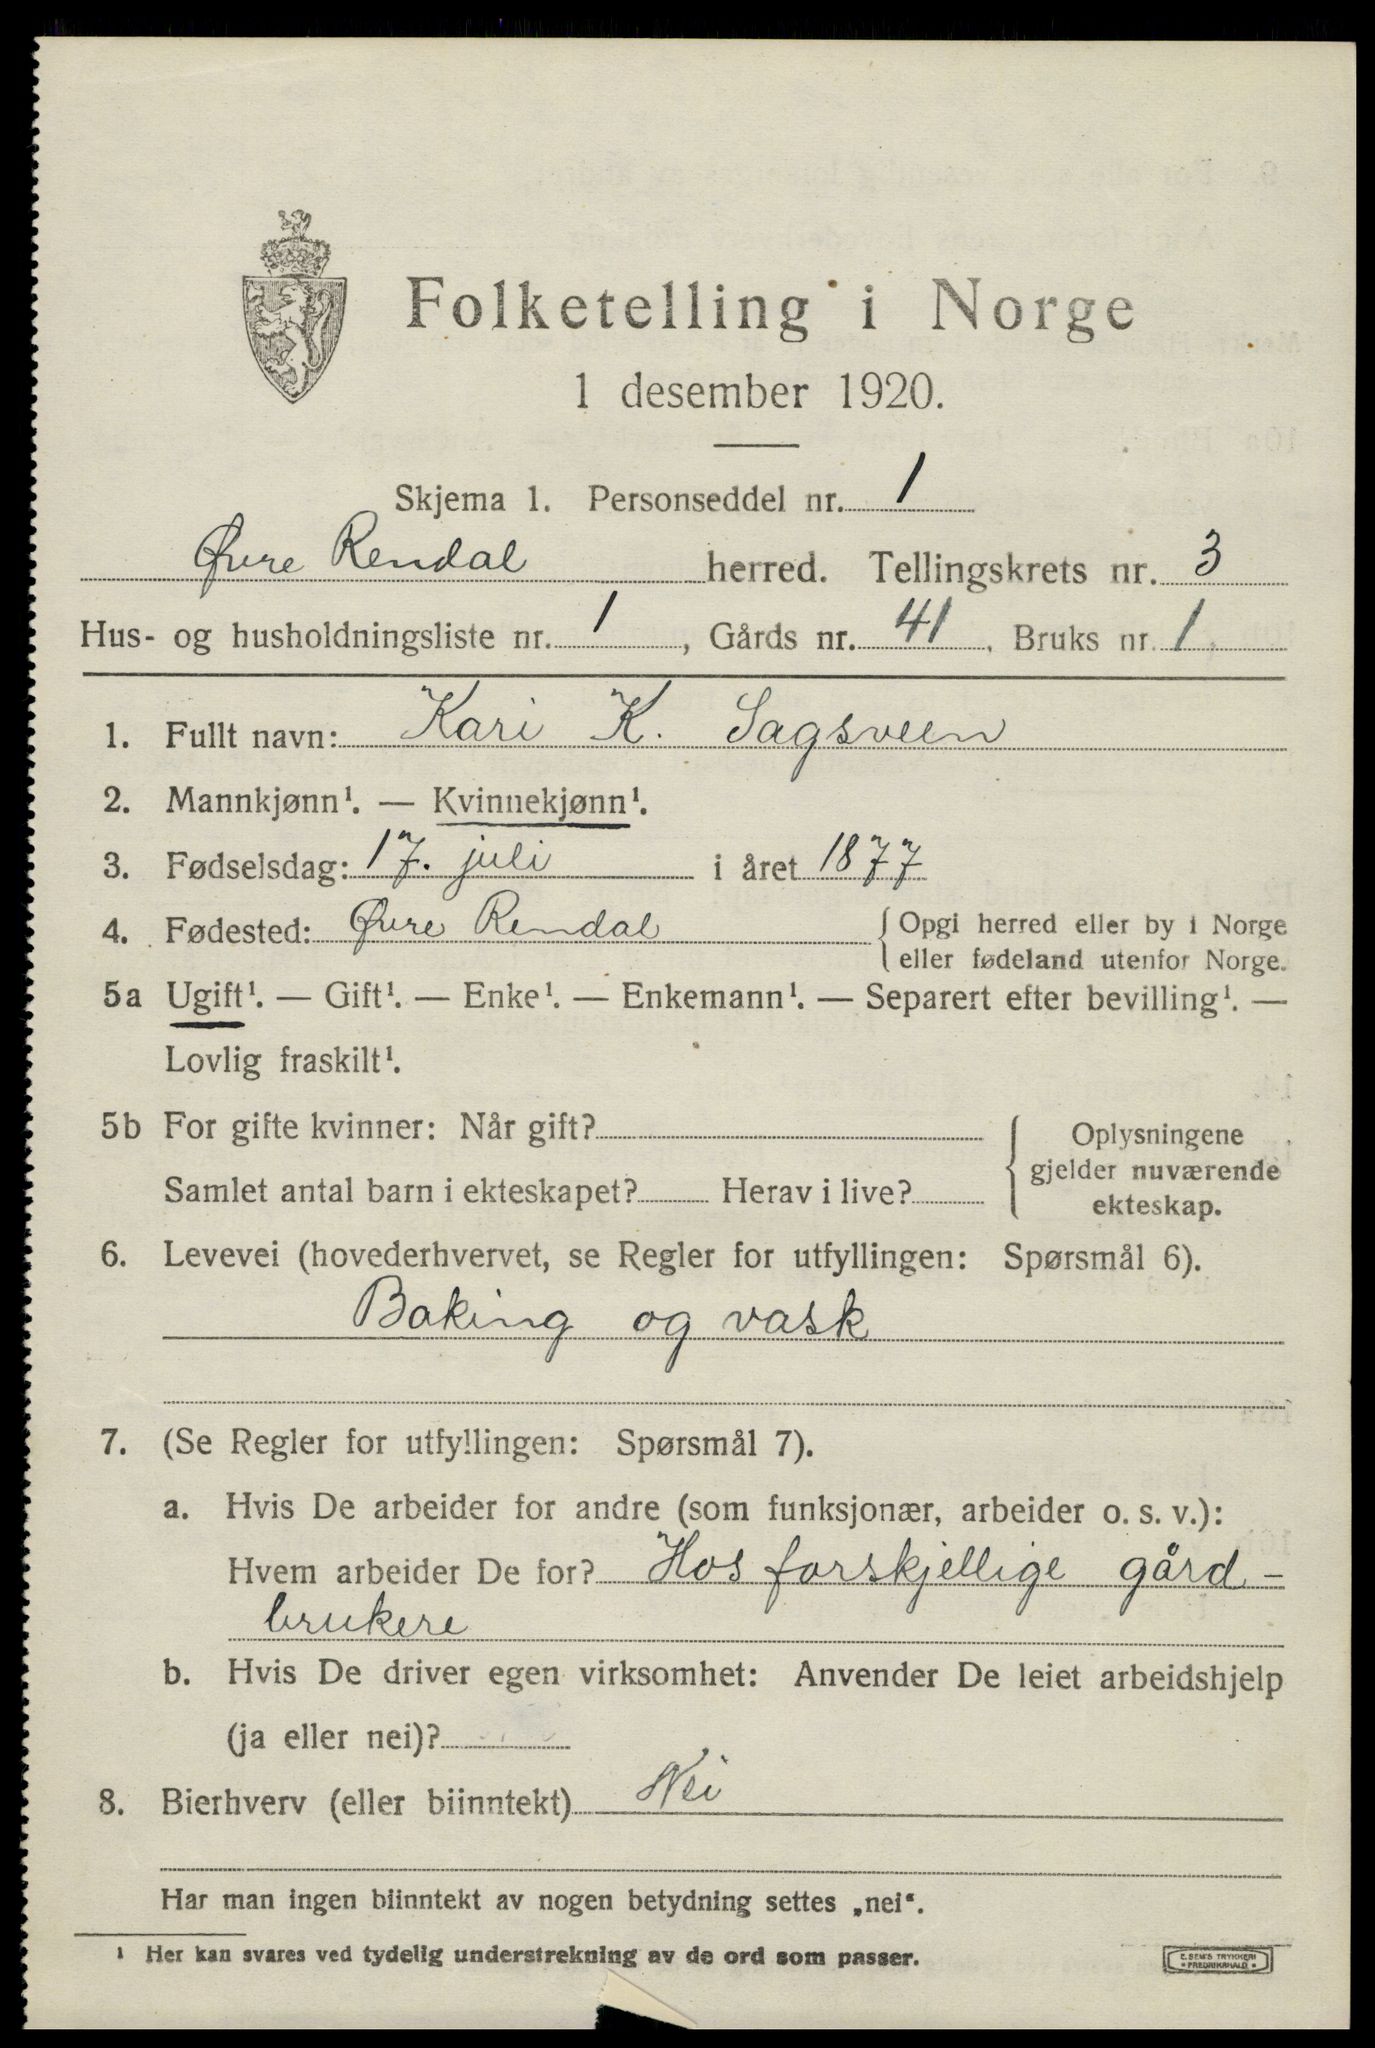 Folketelling i Norge
1 desember 1920.
Skjema 1. Personseddel nr. 1
Øvre Rendal herred. Tellingskrets nr. 3
Hus- og husholdningsliste nr. 1, Gårds nr. 41. Bruks nr. 1.
1. Fullt navn: Kari K. Sagsveen
2. Mannkjønn¹. — Kvinnekjønn¹.
3. Fødselsdag: 17. juli i året 1877
4. Fødested: Øvre Rendal { Opgi herred eller by i Norge
eller fødeland utenfor Norge.
5a Ugift¹. — Gift¹. — Enke¹. — Enkemann¹. — Separert efter bevilling¹. —
Lovlig fraskilt¹.
5b For gifte kvinner: Når gift? { Oplysningene
gjelder nuværende
Samlet antal barn i ekteskapet? Herav i live?
ekteskap.
6. Levevei (hovederhvervet, se Regler for utfyllingen: Spørsmål 6).
Baking og vask
7. (Se Regler for utfyllingen: Spørsmål 7).
a. Hvis De arbeider for andre (som funksjonær, arbeider o. s. v.):
Hvem arbeider De for? Hos forskjellige gård-
brukere
b. Hvis De driver egen virksomhet: Anvender De leiet arbeidshjelp
(ja eller nei)?
8. Bierhverv (eller biinntekt) Nei
Har man ingen biinntekt av nogen betydning settes „nei“.
¹ Her kan svares ved tydelig understrekning av de ord som passer.
E. SEM'S TRYKKERI
• FREDRIKSHALD •